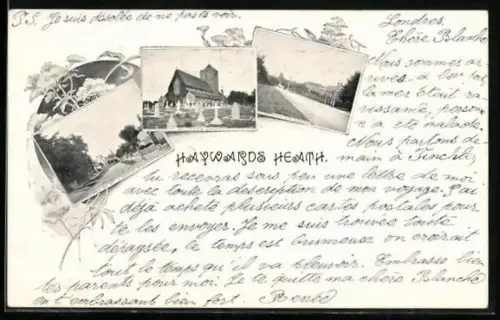 P.S. Je suis désolée de ne pas te voir.
Londres.
Chère Blanche
Nous sommes ar
rivés à bon port
la mer était ra
vissante, person
n'a été malade.
Nous partons de
main à
HAYWARDS HEATH.
tu recevras sous peu une lettre de moi
avec toute la description de mon voyage. J'ai
déjà acheté plusieurs cartes postales pour
te les envoyer. Je me suis trouvée toute
dépaysée, le temps est brumeux on croirait
tout le temps qu'il va pleuvoir. Embrasse bien
tes parents pour moi. Je te quitte ma chère Blanche
en t'embrassant bien fort. Renée